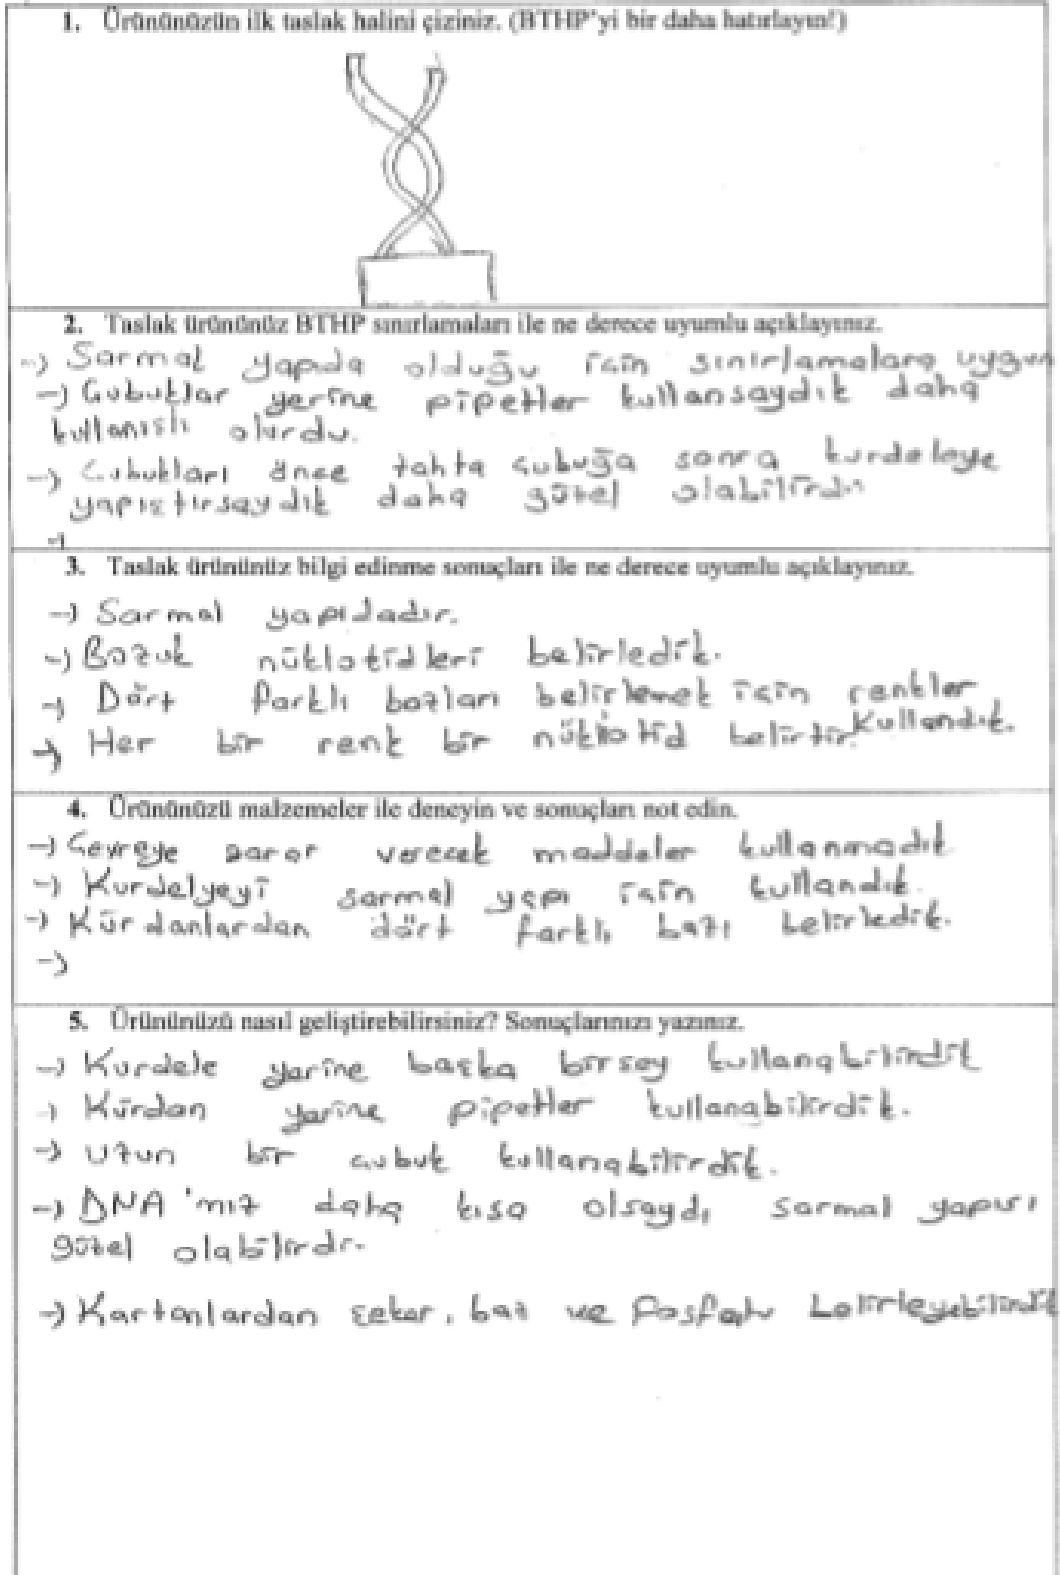 1. Ürününüzün ilk taslak halini çiziniz. (BTHP'yi bir daha hatırlayın!)
2. Taslak ürününüz BTHP sınırlamaları ile ne derece uyumlu açıklayınız.
-) Sarmal yapıda olduğu için sınırlamalara uygun
-) Çubuklar yerine pipetler kullansaydık daha
kullanışlı olurdu.
-) Çubukları önce tahta çubuğa sonra kurdeleye
yapıştırsaydık daha güzel olabilirdi
3. Taslak ürününüz bilgi edinme sonuçları ile ne derece uyumlu açıklayınız.
-) Sarmal yapıdadır.
-) Bozuk nüklotidleri belirledik.
-) Dört farklı bazları belirlemek için renkler
kullandık.
-) Her bir renk bir nüklotid belirtir.
4. Ürününüzü malzemeler ile deneyin ve sonuçları not edin.
-) Çevreye zarar verecek maddeler kullanmadık
-) Kurdelyeyi sarmal yapı için kullandık.
-) Kürdanlardan dört farklı bazı belirledik.
-)
5. Ürününüzü nasıl geliştirebilirsiniz? Sonuçlarınızı yazınız.
-) Kurdele yerine başka birşey kullanabilirdik
-) Kürdan yerine pipetler kullanabilirdik.
-) Uzun bir çubuk kullanabilirdik.
-) DNA'mız daha kısa olsaydı sarmal yapısı
güzel olabilirdi.
-) Kartonlardan şeker, baz ve fosfatı belirleyebilirdik